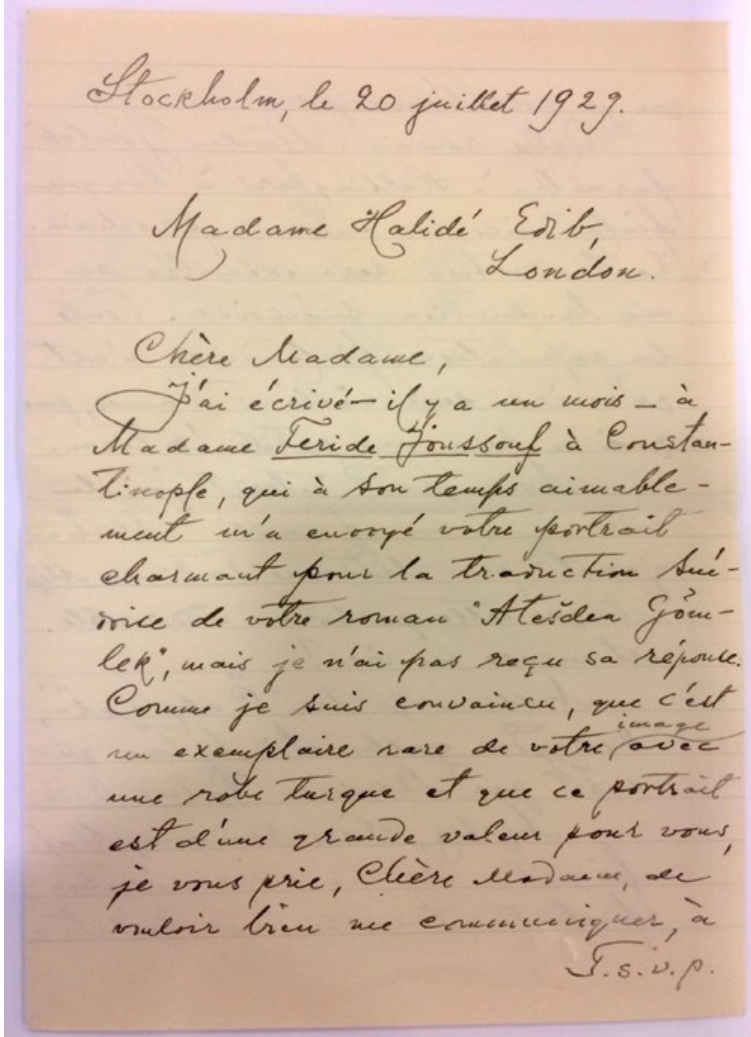 Stockholm, le 20 juillet 1929.
Madame Halidé Edib,
London.
Chère Madame,
J'ai écrivé — il y a un mois — à
Madame Feride Joussouf à Constan-
tinople, qui à son temps aimable-
ment m'a envoyé votre portrait
charmant pour la traduction sué-
doise de votre roman "Atešden Göm-
lek", mais je n'ai pas reçu sa réponse.
Comme je suis convaincu, que c'est
un exemplaire rare de votre image avec
une robe turque et que ce portrait
est d'une grande valeur pour vous,
je vous prie, Chère Madame, de
vouloir bien me communiquer, à
T.s.v.p.